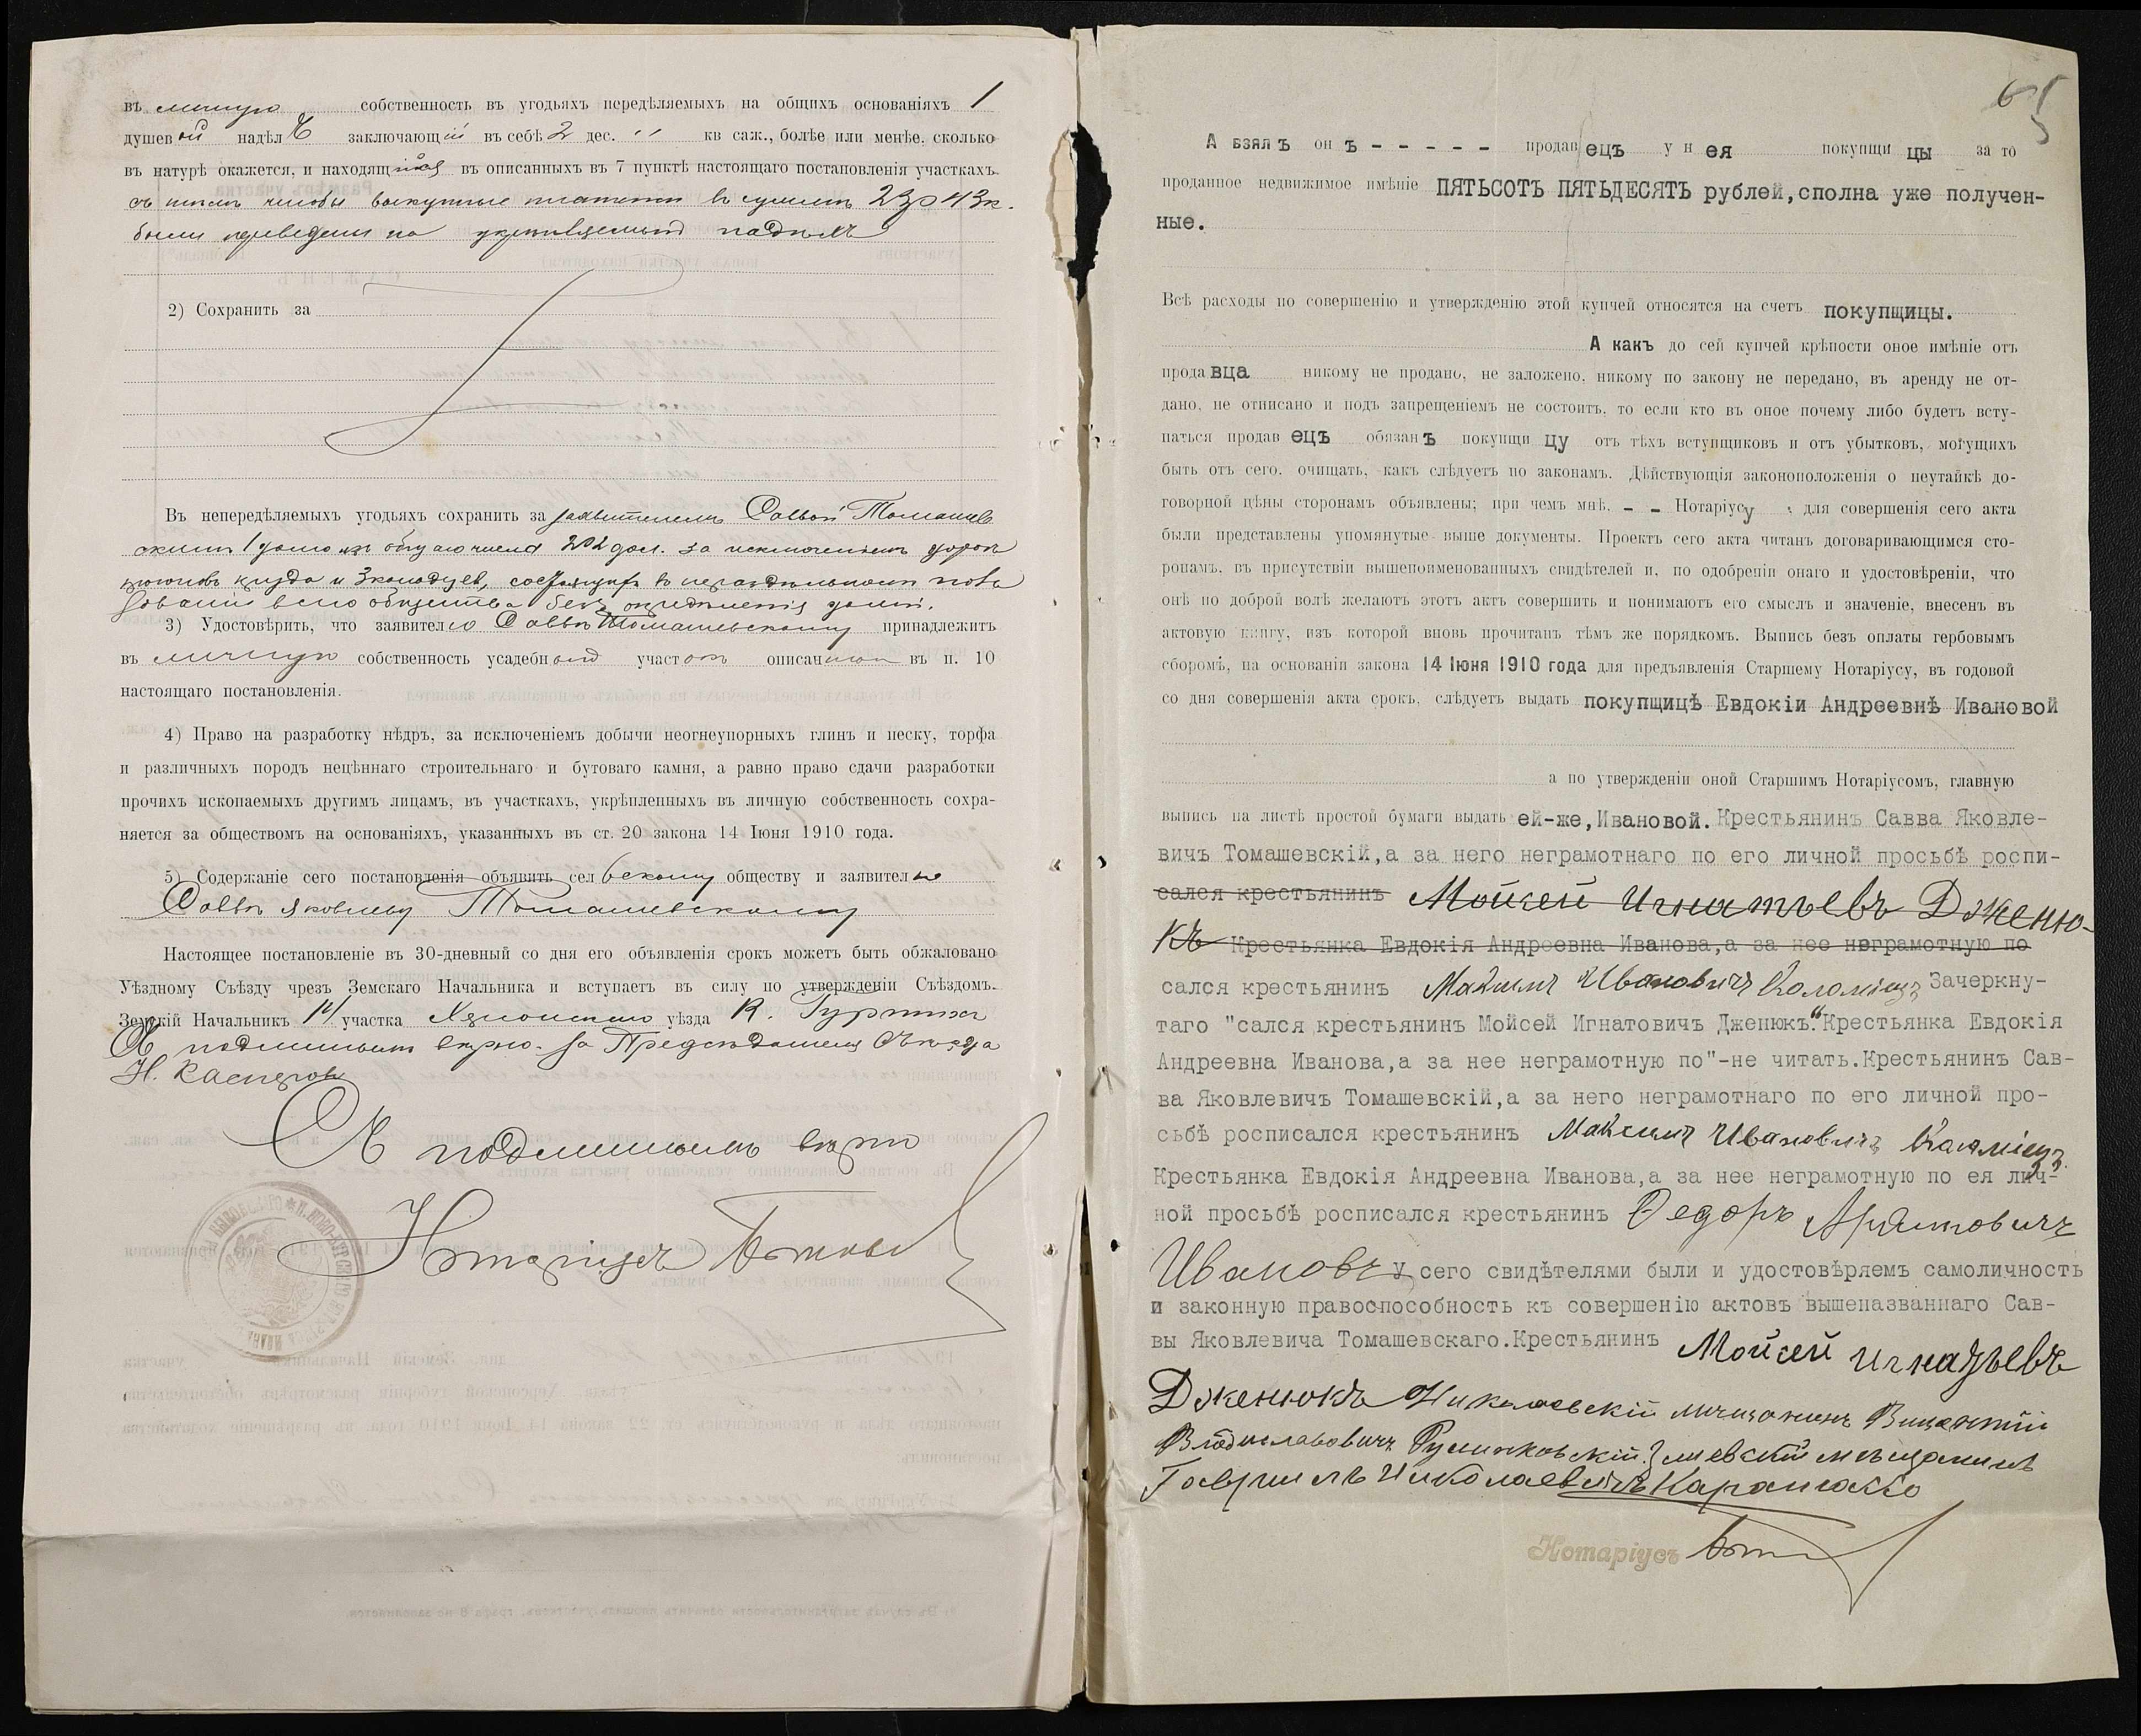 въ личную собственность въ угодьяхъ передѣляемыхъ на общихъ основаніяхъ 1
душевой надѣлъ заключающій въ себѣ 2 дес. " кв саж., болѣе или менѣе, сколько
въ натурѣ окажется, и находящійся въ описанныхъ въ 7 пунктѣ настоящаго постановленія участкахъ
съ тѣмъ чтобы выкупные платежи въ суммѣ 23р 43к.
были переведены на укрѣпляемый надѣлъ
2) Сохранить за
Въ непередѣляемыхъ угодьяхъ сохранить за заявителемъ Саввой Томашев
скимъ 1 долю изъ общаго числа 202 дол. за исключеніемъ дорогъ
и 3 колодцевъ, состоящихъ въ нераздѣльномъ поль
зованіи всего общества безъ опредѣленія долей.
3) Удостовѣрить, что заявителю Саввѣ Томашевскому принадлежитъ
въ личную собственность усадебный участокъ описанный въ п. 10
настоящаго постановленія.
4) Право на разработку нѣдръ, за исключеніемъ добычи неогнеупорныхъ глинъ и песку, торфа
и различныхъ породъ нецѣннаго строительнаго и бутоваго камня, а равно право сдачи разработки
прочихъ ископаемыхъ другимъ лицамъ, въ участкахъ, укрѣпленныхъ въ личную собственность сохра-
няется за обществомъ на основаніяхъ, указанныхъ въ ст. 20 закона 14 Іюня 1910 года.
5) Содержаніе сего постановленія объявить сельскому обществу и заявителю
Саввѣ Яковлеву Томашевскому
Настоящее постановленіе въ 30-дневный со дня его объявленія срокъ можетъ быть обжаловано
Уѣздному Съѣзду чрезъ Земскаго Начальника и вступаетъ въ силу по утвержденіи Съѣздомъ.
Земскій Начальникъ участка Херсонскаго уѣзда
Съ подлиннымъ вѣрно. За Предсѣдателя Съѣзда
Н. Касперов
Съ подлиннымъ вѣрно
Нотаріусъ
65
А взялъ онъ - - - - - продавецъ у нея покупщицы за то
проданное недвижимое имѣніе ПЯТЬСОТЪ ПЯТЬДЕСЯТЪ рублей, сполна уже получен-
ные.
Всѣ расходы по совершенію и утвержденію этой купчей относятся на счетъ покупщицы.
А какъ до сей купчей крѣпости оное имѣніе отъ
продавца никому не продано, не заложено, никому по закону не передано, въ аренду не от-
дано, не отписано и подъ запрещеніемъ не состоитъ, то если кто въ оное почему либо будетъ всту-
паться продавецъ обязанъ покупщицу отъ тѣхъ вступщиковъ и отъ убытковъ, могущихъ
быть отъ сего, очищать, какъ слѣдуетъ по законамъ. Дѣйствующія законоположенія о неутайкѣ до-
говорной цѣны сторонамъ объявлены; при чемъ мнѣ, - - Нотаріусу для совершенія сего акта
были представлены упомянутые выше документы. Проектъ сего акта читанъ договаривающимся сто-
ронамъ, въ присутствіи вышепоименованныхъ свидѣтелей и, по одобреніи онаго и удостовѣреніи, что
онѣ по доброй волѣ желаютъ этотъ актъ совершить и понимаютъ его смыслъ и значеніе, внесенъ въ
актовую книгу, изъ которой вновь прочитанъ тѣмъ же порядкомъ. Выпись безъ оплаты гербовымъ
сборомъ, на основаніи закона 14 Іюня 1910 года для предъявленія Старшему Нотаріусу, въ годовой
со дня совершенія акта срокъ, слѣдуетъ выдать покупщицѣ Евдокіи Андреевнѣ Ивановой
а по утвержденіи оной Старшимъ Нотаріусомъ, главную
выпись на листѣ простой бумаги выдать ей-же, Ивановой. Крестьянинъ Савва Яковле-
вичъ Томашевскій, а за него неграмотнаго по его личной просьбѣ роспи-
сался крестьянинъ Мойсей Игнатьевъ Дженю-
къ Крестьянка Евдокія Андреевна Иванова, а за нее неграмотную по
сался крестьянинъ Максимъ Ивановичъ Коломіецъ Зачеркну-
таго "сался крестьянинъ Мойсей Игнатовичъ Дженюкъ". "Крестьянка Евдокія
Андреевна Иванова, а за нее неграмотную по"-не читать. Крестьянинъ Сав-
ва Яковлевичъ Томашевскій, а за него неграмотнаго по его личной про-
сьбѣ росписался крестьянинъ Максимъ Ивановичъ Коломіецъ
Крестьянка Евдокія Андреевна Иванова, а за нее неграмотную по ея лич-
ной просьбѣ росписался крестьянинъ Ѳедоръ
Ивановъ У сего свидѣтелями были и удостовѣряемъ самоличность
и законную правоспособность къ совершенію актовъ вышеназваннаго Сав-
вы Яковлевича Томашевскаго. Крестьянинъ Мойсей Игнатьевъ
Дженюкъ Николаевскій мѣщанинъ Викентій
Владиславовичъ мѣщанинъ
Гавріилъ Николаевичъ
Нотаріусъ